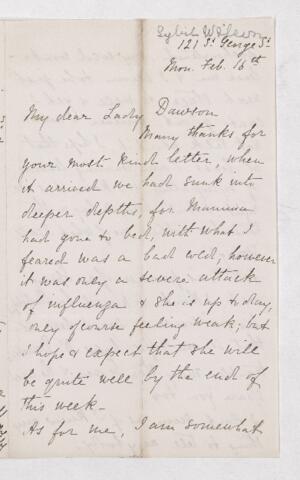 121 St. George St
Mon. Feb. 16th
My dear Lady Dawson
Many thanks for
your most kind letter, when
it arrived we had sunk into
deeper depths, for Mamma
had gone to bed, with what I
feared was a bad cold; however
it was only a severe attack
of influenza & she is up today,
only of course feeling weak; but
I hope & expect that she will
be quite well by the end of
this week_
As for me, I am somewhat